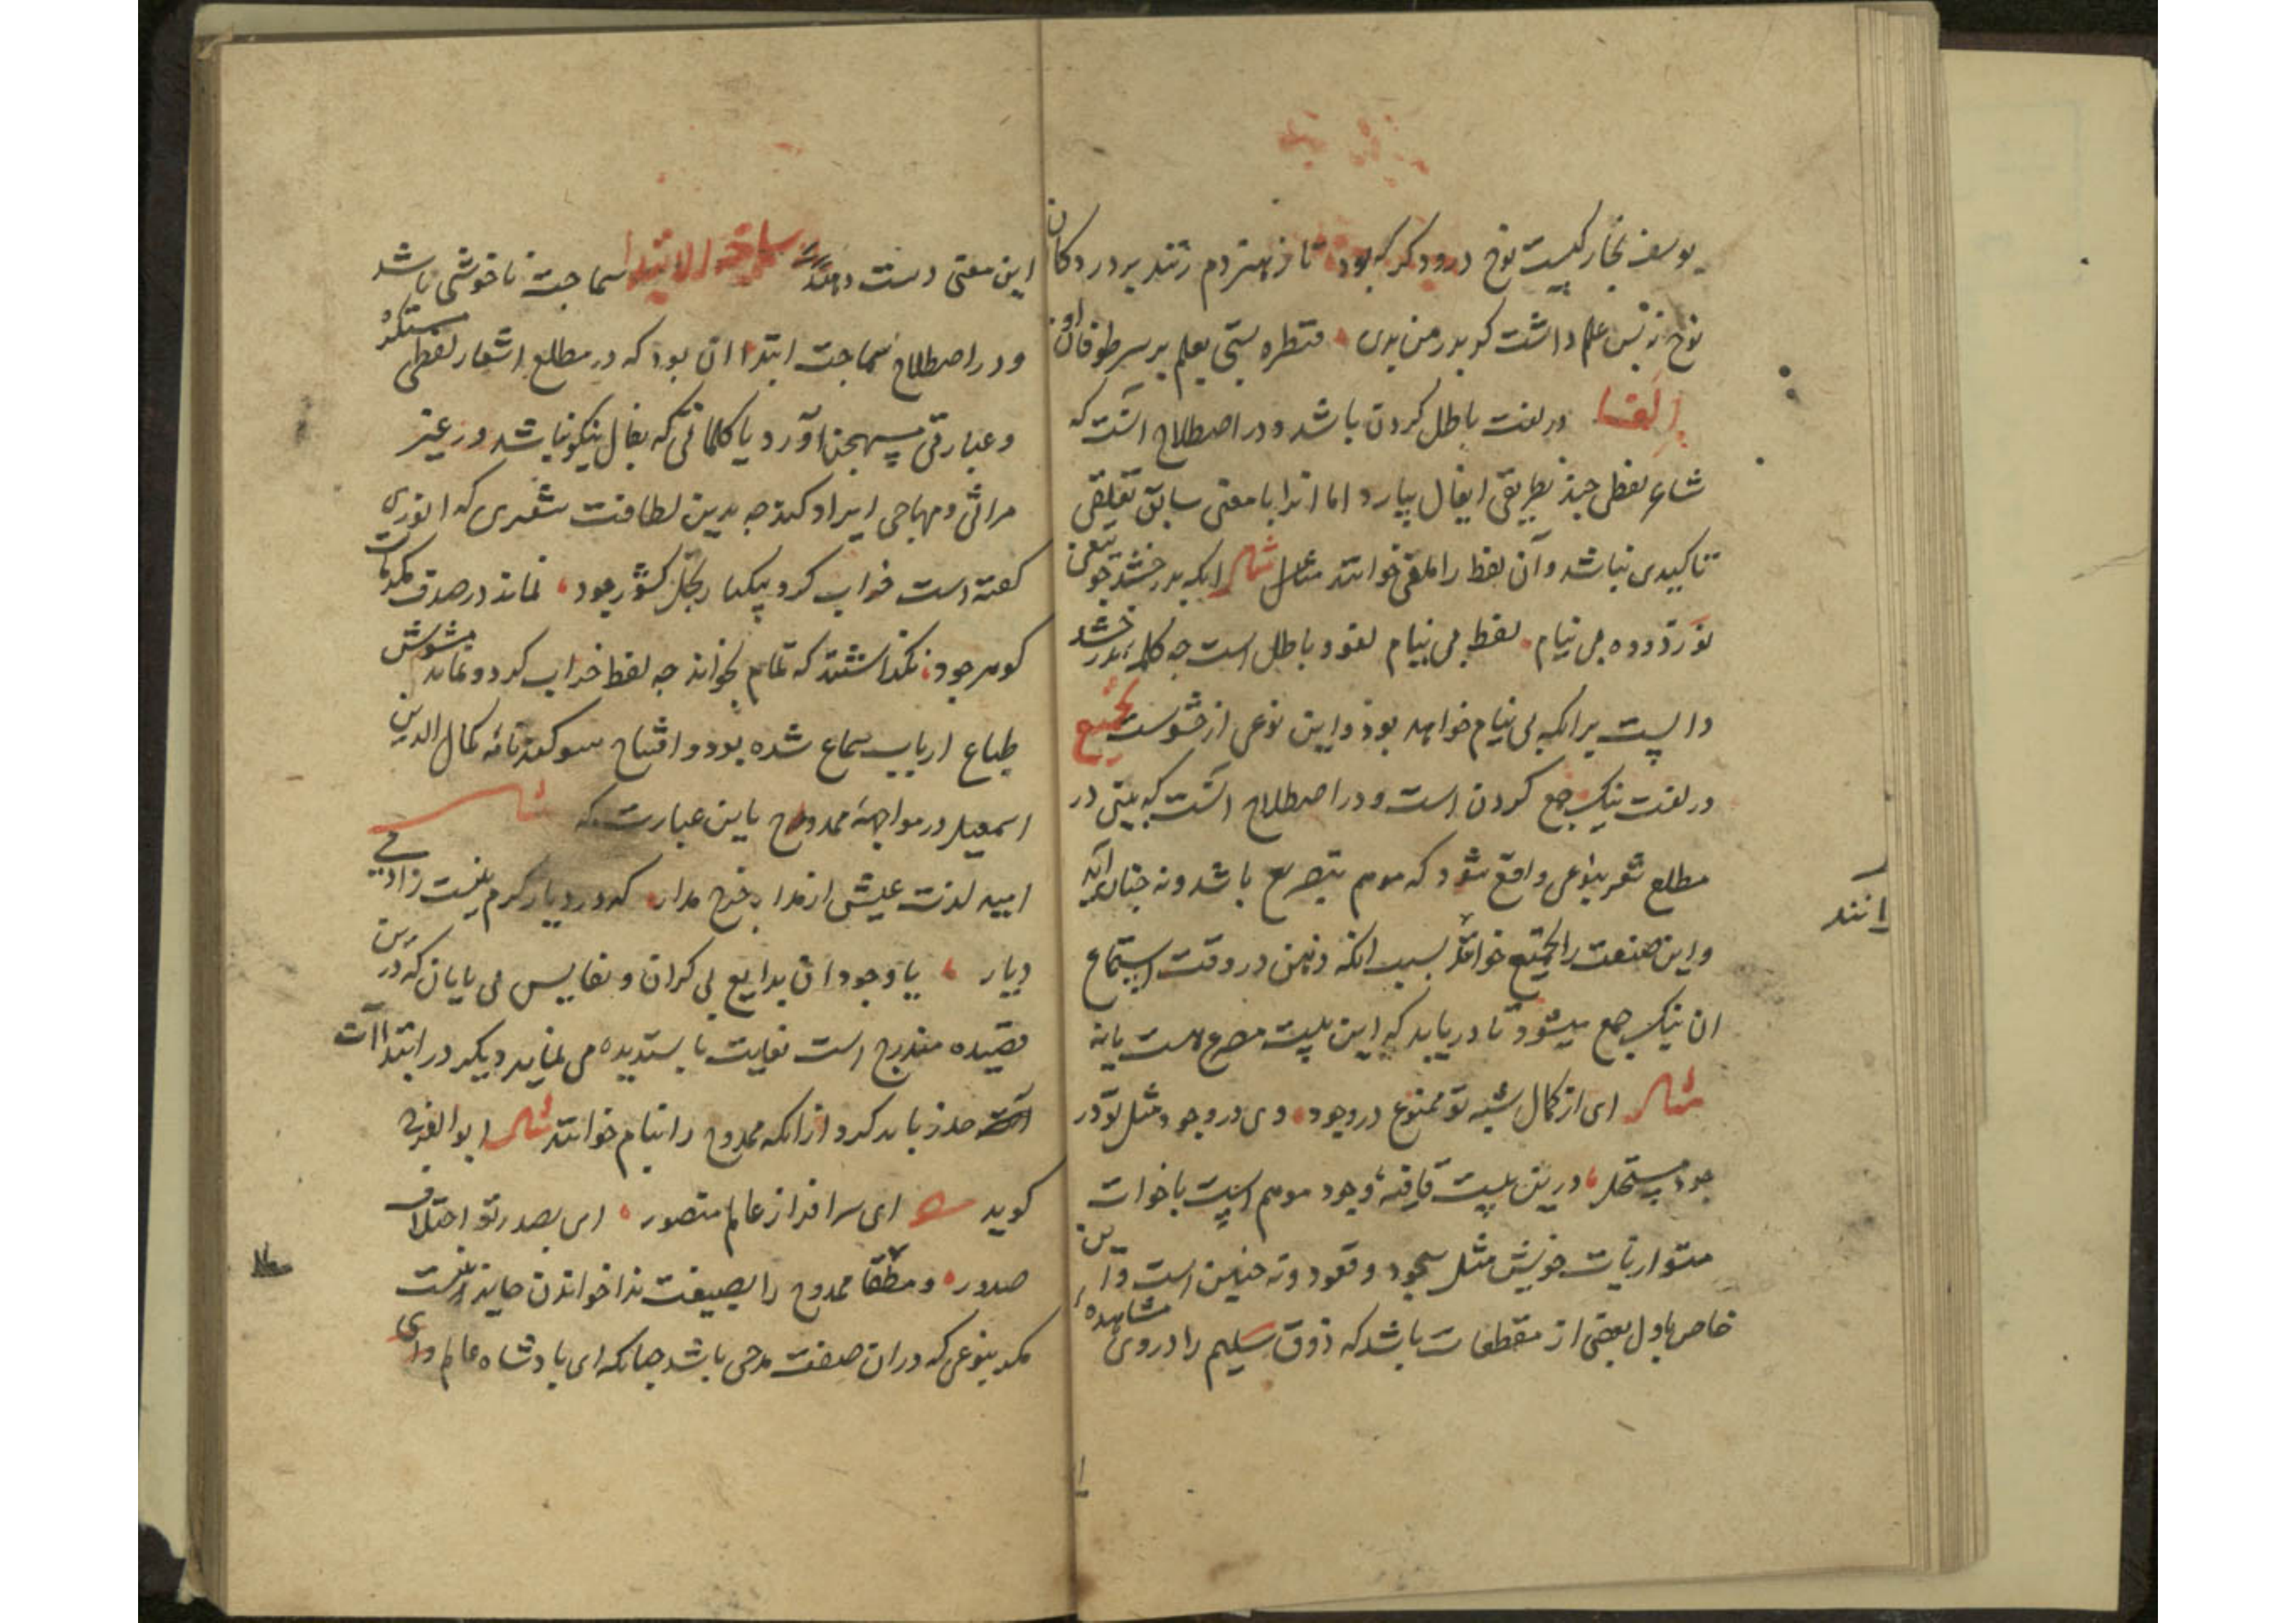 یوسف نجار کیست نوح درودکر که بود تا ز هنر دم زنند بر در دکان
نوح نه بس علم داشت کر بدر من بدی قنطره بستی بعلم بر سر طوفان او
الغا در لغت باطل کردن باشد و در اصطلاح آنست که
شاعر لفظی چند بطریق ایغال بیارد اما انرا با معنی سابق تعلقی
تاکیدی نباشد و آن لفظ را ملغی خوانند مثال انکه بدرخشد جو تیغی
بی نیام لفظ بی نیام لغو و باطل است جه کلمهٔ بدرخشد
دالست برانکه بی نیام خواهد بوذ و این نوعی از حشوست تجمیع
در لغت نیک جمع کردن است و در اصطلاح آنست که بیتی در
مطلع شعر بنوعی واقع شود که موهم بتصریع باشد و نه جنان اید
و این صنعت را تجمیع خوانند بسبب انکه ذهن در وقت استماع
ان نیک جمع میشود تا دریابد که این بیت مصرع هست یا نه
مثال ای از کمال شبه تو ممنوع در وجود وی در وجود مثل تو در
جود مستحیل درین بیت قافیهٔ وجود موهم است باخوات
متوازیات خویش مثل سجود و قعود و نه جنین است و این
خاص باول بعضی از مقطعات باشد که ذوق سلیم را در وی مشاهدهٔ
انند
این معنی دست دهد سماجة الابتدا سماجت ناخوشی باشد
و در اصطلاح سماجت ابتدا ان بود که در مطلع اشعار لفظی مستکره
و عبارتی مستهجن آورد یا کلماتی که بفال نیکو نباشد در غیر
مراثی و مهاجی ایراد کند جه بدین لطافت شعری که انوری
کفته است خراب کرد بیکبار بخل کشور جود نماند در صدف مکرمات
کوهر جود نکذاشتند که تمام بخواند جه لفظ خراب کرد و نماند مشوش
طباع ارباب سماع شده بود و افتتاح سوکندنامه کمال الدین
اسمعیل در مواجههٔ ممدوح باین عبارت که
امید لذت عیش از مدار چرخ مدار که در دیار کرم نیست زادمی
دیار با وجود ان بدایع بی کران و نفایس بی پایان که درین
قصیده مندرج است بغایت ناپسندیده می نماید دیکر در ابتداآت
حذر باید کرد از انکه ممدوح را بنام خوانند مثال ابو الفرج
کوید ای سرافراز عالم منصور ای بصدر تو اختلاف
صدور و مطلقا ممدوح را بصیغت ندا خواندن جایز نیست
مکر بنوعی که در ان صفت مدحی باشد چنانکه ای بادشاه عالم و ای